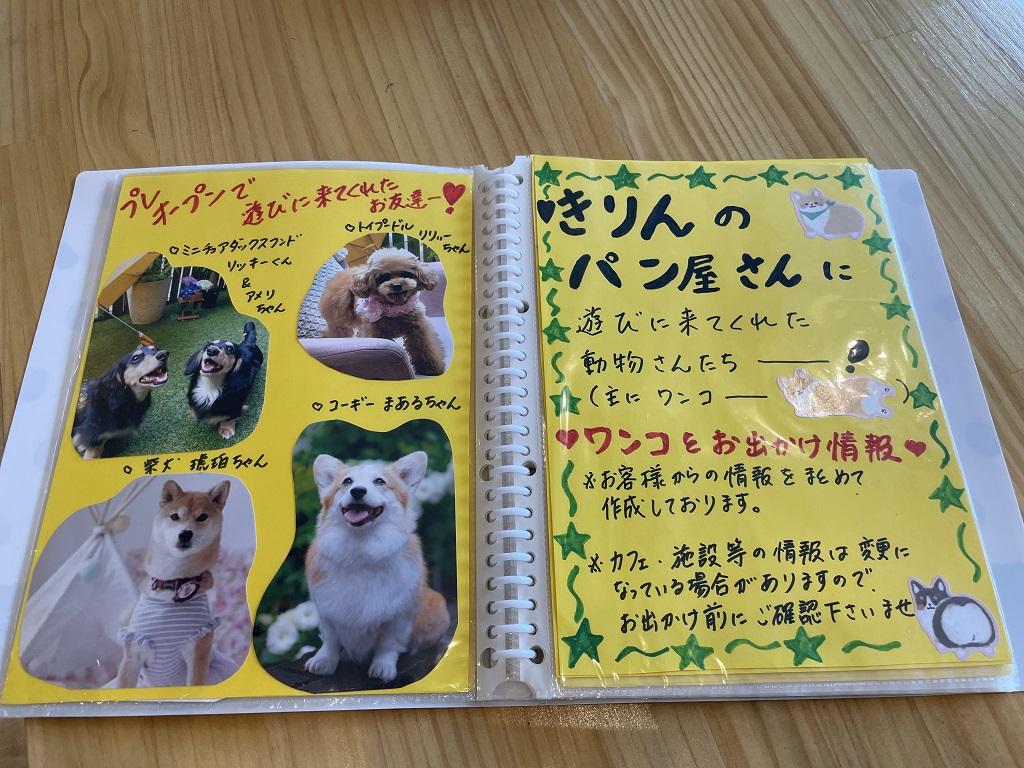 プレオープンで
遊びに来てくれた
お友達ー!
♡ミニチュアダックスフンド
リッキーくん
&
アメリ
ちゃん
♡トイプードル リリィー
ちゃん
♡コーギー まあるちゃん
♡柴犬 琥珀ちゃん
♥きりんの
パン屋さんに
遊びに来てくれた
動物さんたち ー!
(主に ワンコー )
♥ワンコとお出かけ情報♥
※お客様からの情報をまとめて
作成しております。
※カフェ・施設等の情報は変更に
なっている場合がありますので、
お出かけ前にご確認下さいませ